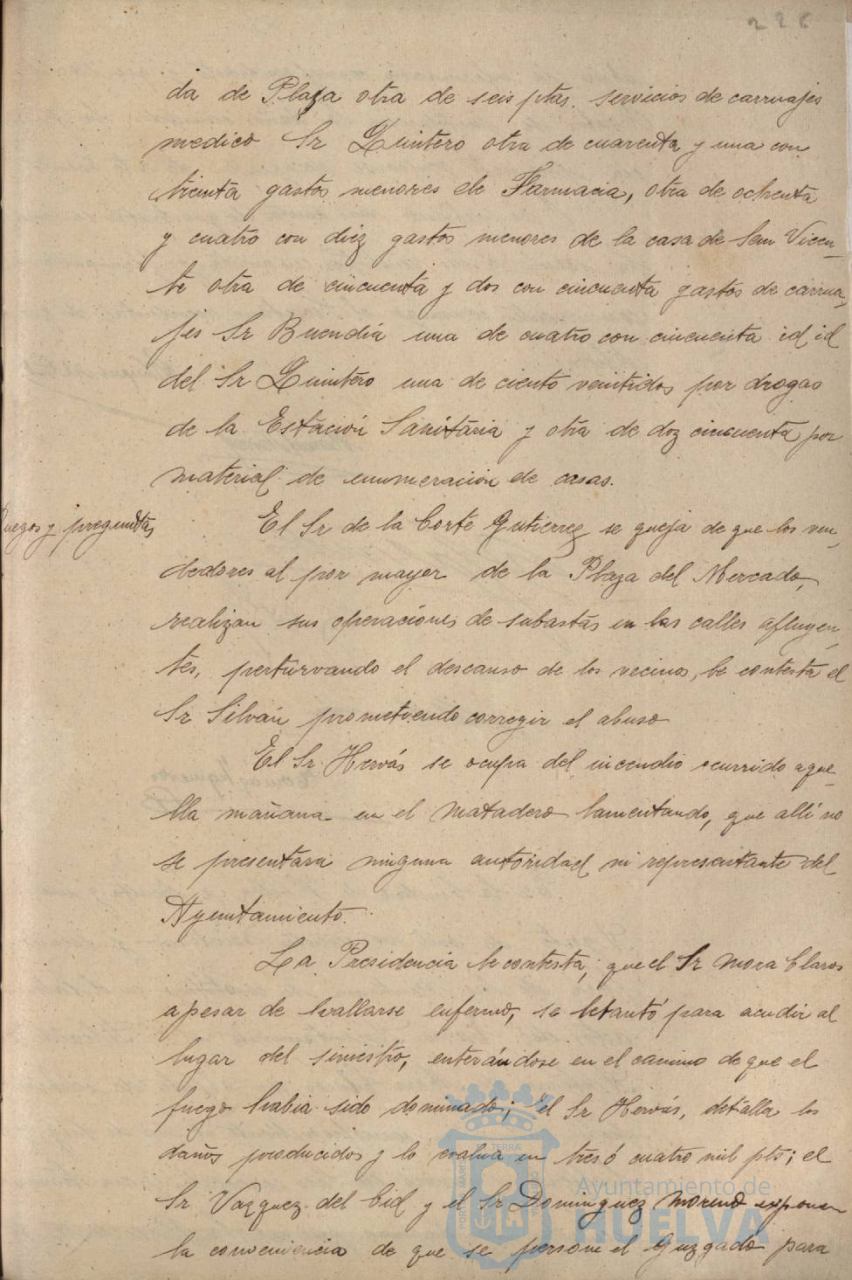 226
da de Plaza otra de seis ptas. servicios de carruajes
medico Sr Quintero otra de cuarenta y una con
treinta gastos menores de Farmacia, otra de ochenta
y cuatro con diez gastos menores de la casa de San Vicen-
te otra de cincuenta y dos con cincuenta gastos de carrua-
jes Sr Buendía una de cuatro con cincuenta id id
del Sr Quintero una de ciento veintidos por drogas
de la Estación Sanitaria y otra de doz cincuenta por
material de enumeración de casas.
Ruegos y preguntas
El Sr de la Corte Gutierrez se queja de que los ven-
dedores al por mayor de la Plaza del Mercado,
realizan sus operaciones de subastas en las calles afluyen-
tes, perturvando el descanso de los vecinos, le contesta el
Sr Silván prometiendo corregir el abuso
El Sr Hervás se ocupa del incendio ocurrido aque-
lla mañana en el matadero lamentando, que allí no
se presentara ninguna autoridad ni representante del
Ayuntamiento.
La Presidencia le contesta, que el Sr Mora Claros
apesar de hallarse enfermo, se letantó para acudir al
lugar del siniestro, enterándose en el camino de que el
fuego habia sido dominado; el Sr Hervás, detalla los
daños producidos y lo evalua en tres ó cuatro mil pts; el
Sr Vazquez del Cid y el Sr Dominguez Moreno exponen
la conveniencia de que se persone el Juzgado para
Ayuntamiento de
HUELVA